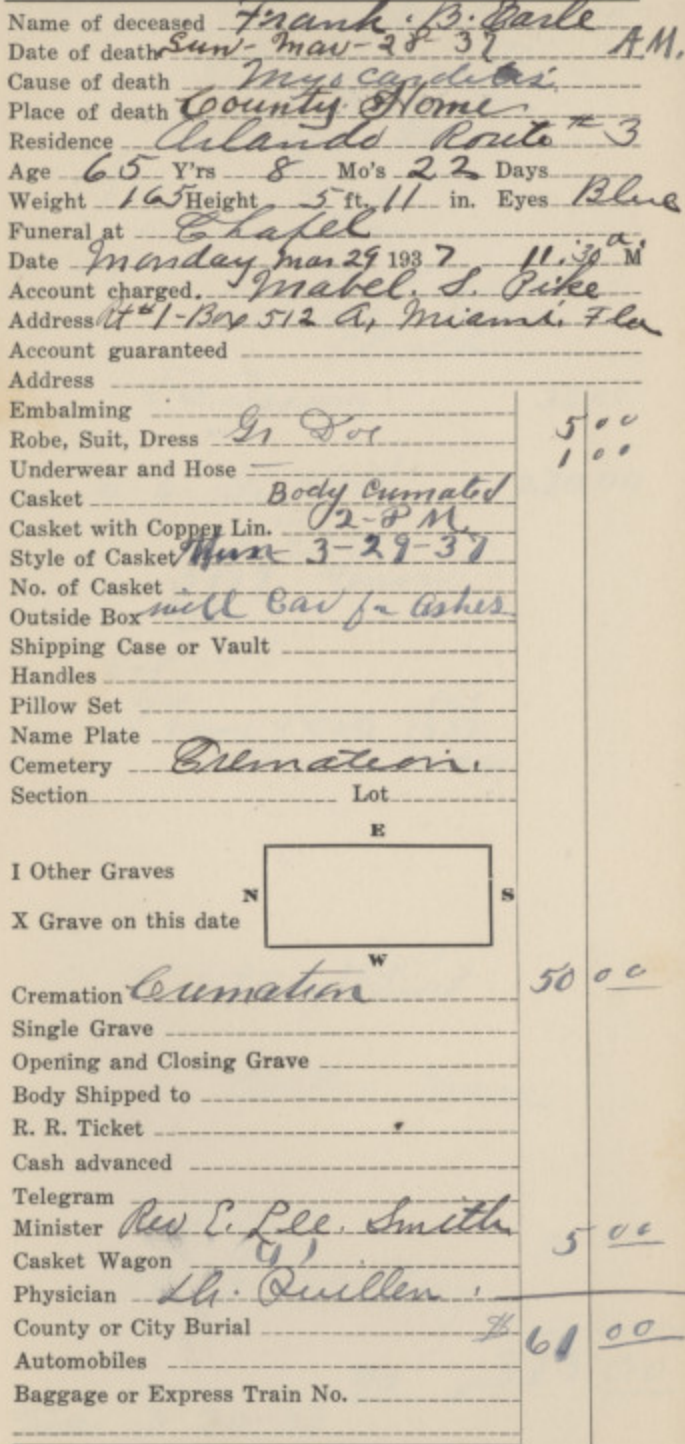 Name of deceased Frank. B. Earle
Date of death Sun- Mar- 28 37 A.M.
Cause of death Myocarditis
Place of death County Home
Residence Orlando Route #3
Age 65 Y'rs 8 Mo's 22 Days
Weight 165 Height 5 ft. 11 in. Eyes Blue
Funeral at Chapel
Date Monday Mar 29 1937 11:30 a. M
Account charged. Mabel. S. Pike
Address Rt #1-Box 512 A, Miami, Fla
Account guaranteed
Address
Embalming
Robe, Suit, Dress Gr 5 00
Underwear and Hose — 1 00
Casket Body Cremated
Casket with Copper Lin. 2-P M.
Style of Casket 3-29-37
No. of Casket
Outside Box will for Ashes
Shipping Case or Vault
Handles
Pillow Set
Name Plate
Cemetery Cremation.
Section Lot
E
I Other Graves
N S
X Grave on this date
W
Cremation Cremation 50 00
Single Grave
Opening and Closing Grave
Body Shipped to
R. R. Ticket
Cash advanced
Telegram
Minister Rev E. Lee. Smith 5 00
Casket Wagon
Physician Dr. Quillen
County or City Burial $ 61 00
Automobiles
Baggage or Express Train No.